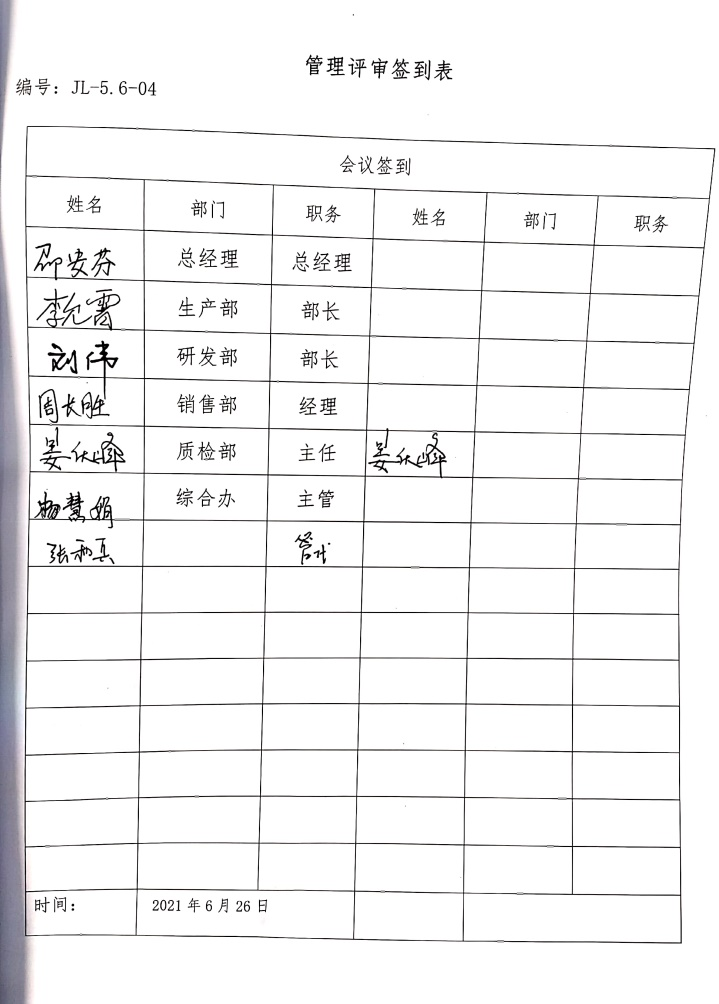 管理评审签到表
编号：JL-5.6-04
会议签到
姓名 部门 职务 姓名 部门 职务
邵安芬 总经理 总经理
李允雷 生产部 部长
刘伟 研发部 部长
周长胜 销售部 经理
姜伏峰 质检部 主任 姜伏峰
杨慧娟 综合办 主管
张和兵 管代
时间： 2021年6月26日